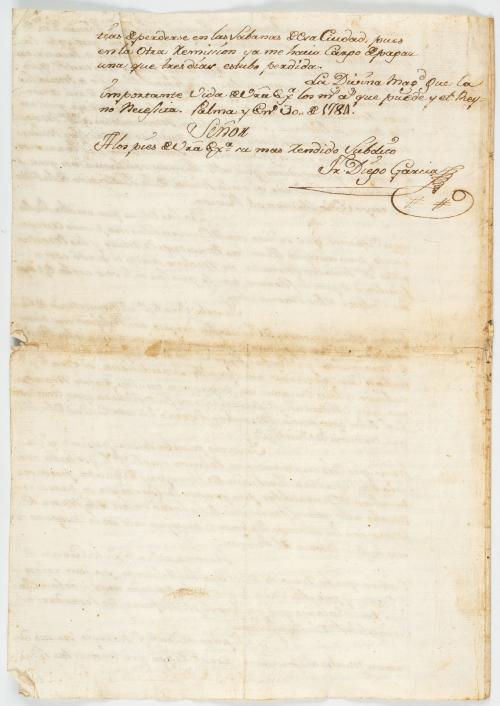 de perderse en las Sabanas de esa Ciudad, pues
en la otra Remision ya me hacia Cargo de pagar
una que tres dias estubo perdida.
La Divina Magd. Gue. la
importante Vida de Vra Exa. los ms. as. que puede, y el Rey-
no Necesita. Palma y En.o 30. de 1784.
Señor
A los pies de Vra Exa. su mas Rendido Subdito
Fr. Diego Garcia